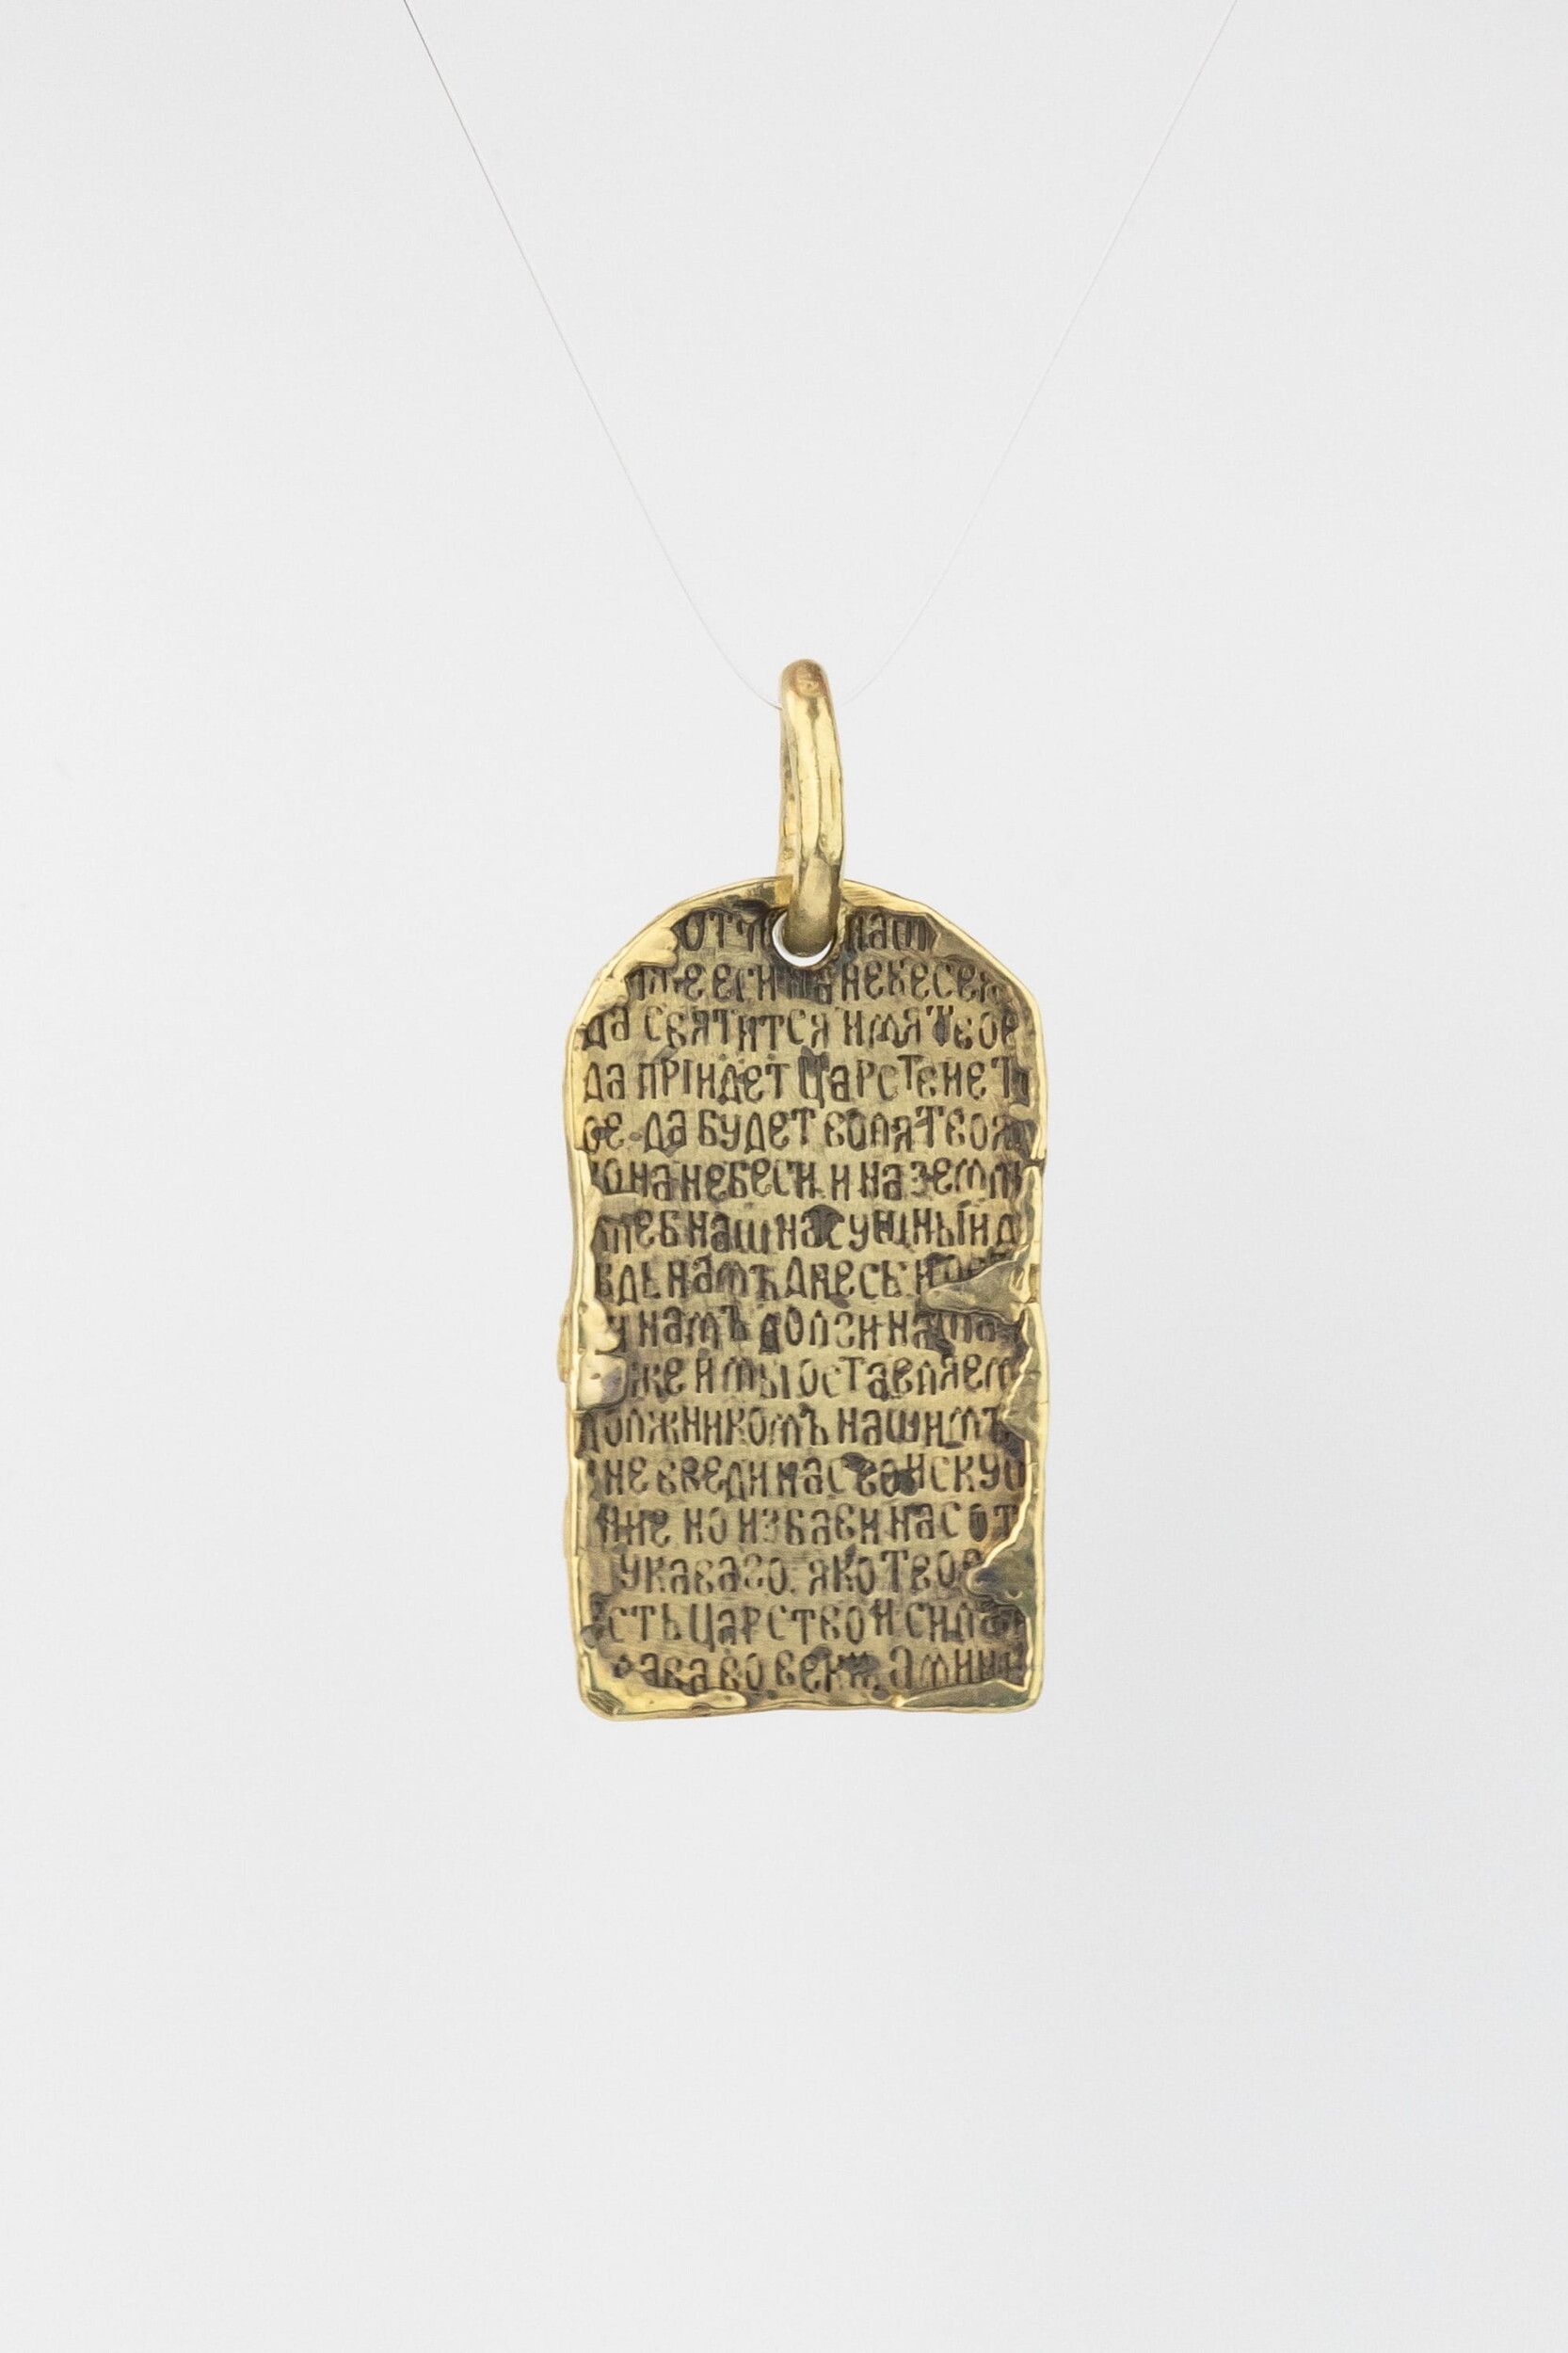 ОТЧ НАШ
ЖЕ ЕСИ НА НЕБЕСЕХ
ДА СВЯТИТСЯ ИМЯ ТВОЕ
ДА ПРІИДЕТ ЦАРСТВИЕ Т
ОЕ ДА БУДЕТ ВОЛЯ ТВОЯ
КО НА НЕБЕСИ И НА ЗЕМЛИ
ЛЕБ НАШ НАСУЩНЫЙ Д
ДЬ НАМЪ ДНЕСЬ И
НАМЪ ДОЛЗИ НАША
ЖЕ И МЫ ОСТАВЛЯЕМ
ДОЛЖНИКОМЪ НАШИМЪ
НЕ ВВЕДИ НАС ВО ИСКУ
НИЕ НО ИЗБАВИ НАС ОТ
УКАВАГО. ЯКО ТВОЕ
ЕСТЬ ЦАРСТВО И СИЛА
АВА ВО ВЕКИ. АМИНЬ